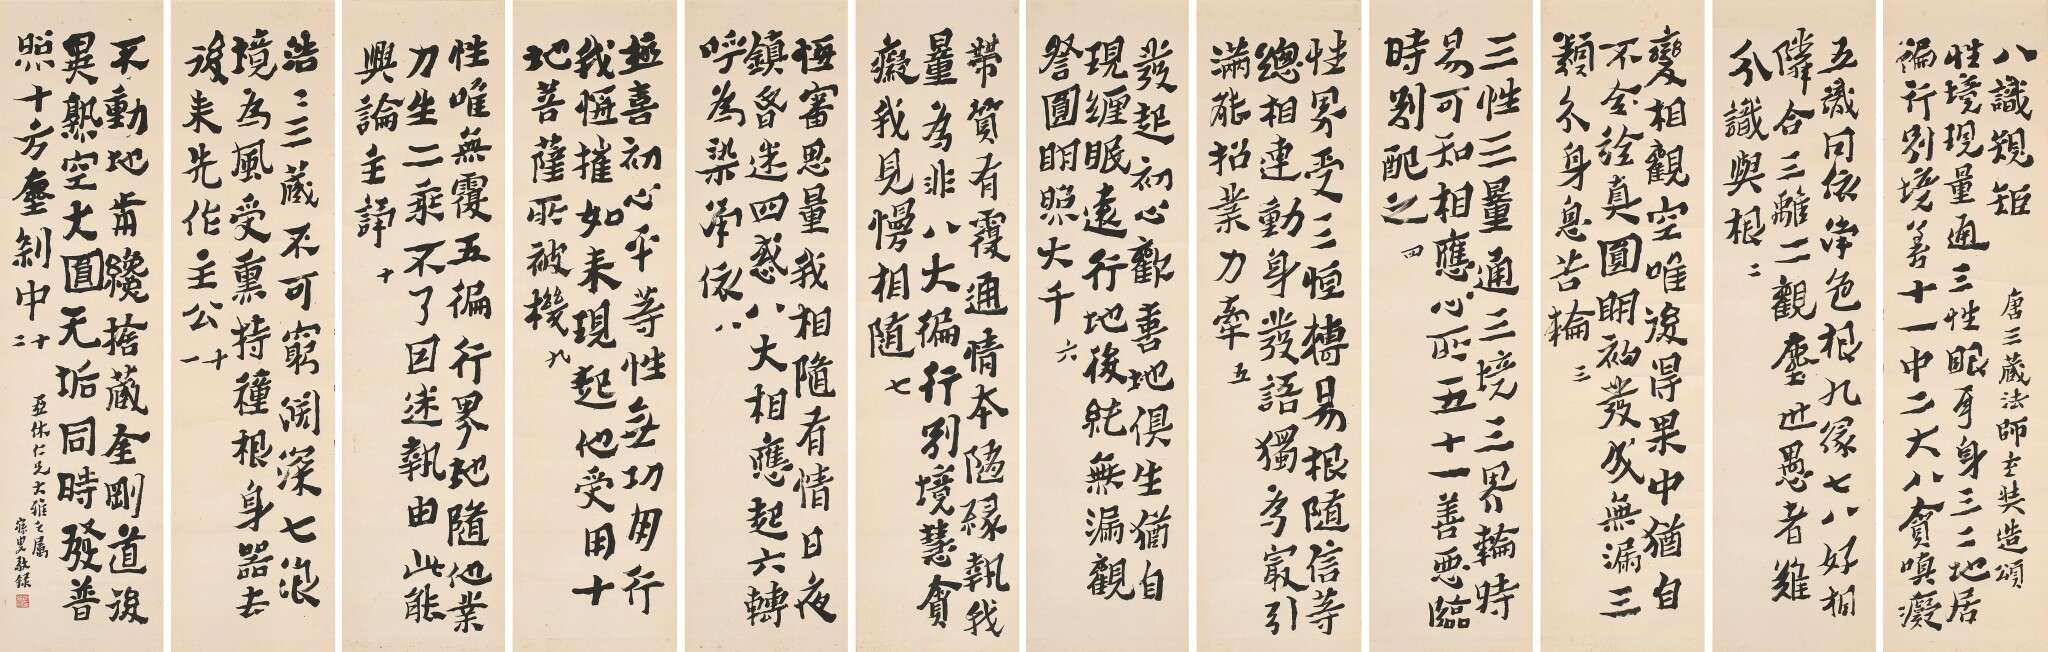 八識規矩
唐三藏法師玄奘造頌
性境現量通三性眼耳身三二地居
徧行別境善十一中二大八貪嗔癡
五識同依淨色根九緣七八好相
隣合三離二觀塵世愚者難
分識與根二
變相觀空唯後得果中猶自
不全詮真圓明初發成無漏三
類分身息苦輪三
三性三量通三境三界輪時
易可知相應心所五十一善惡臨
時別配之四
性界受三恒轉易根隨信等
總相連動身發語獨為最引
滿能招業力牽五
發起初心歡喜地俱生猶自
現纏眠遠行地後純無漏觀
詧圓明照大千六
帶質有覆通情本隨緣執我
量為非八大徧行別境慧貪
癡我見慢相隨七
恆審思量我相隨有情日夜
鎮昏迷四惑八大相應起六轉
呼為染淨依八
極喜初心平等性無功用行
我恆摧如來現起他受用十
地菩薩所被機九
性唯無覆五徧行界地隨他業
力生二乘不了因迷執由此能
興論主諍十
浩〻三藏不可窮淵深七浪
境為風受熏持種根身器去
後來先作主公十一
不動地前纔捨藏金剛道後
異熟空大圓无垢同時發普
照十方塵剎中十二
亞休仁兄大雅之屬
寐叟敬錄